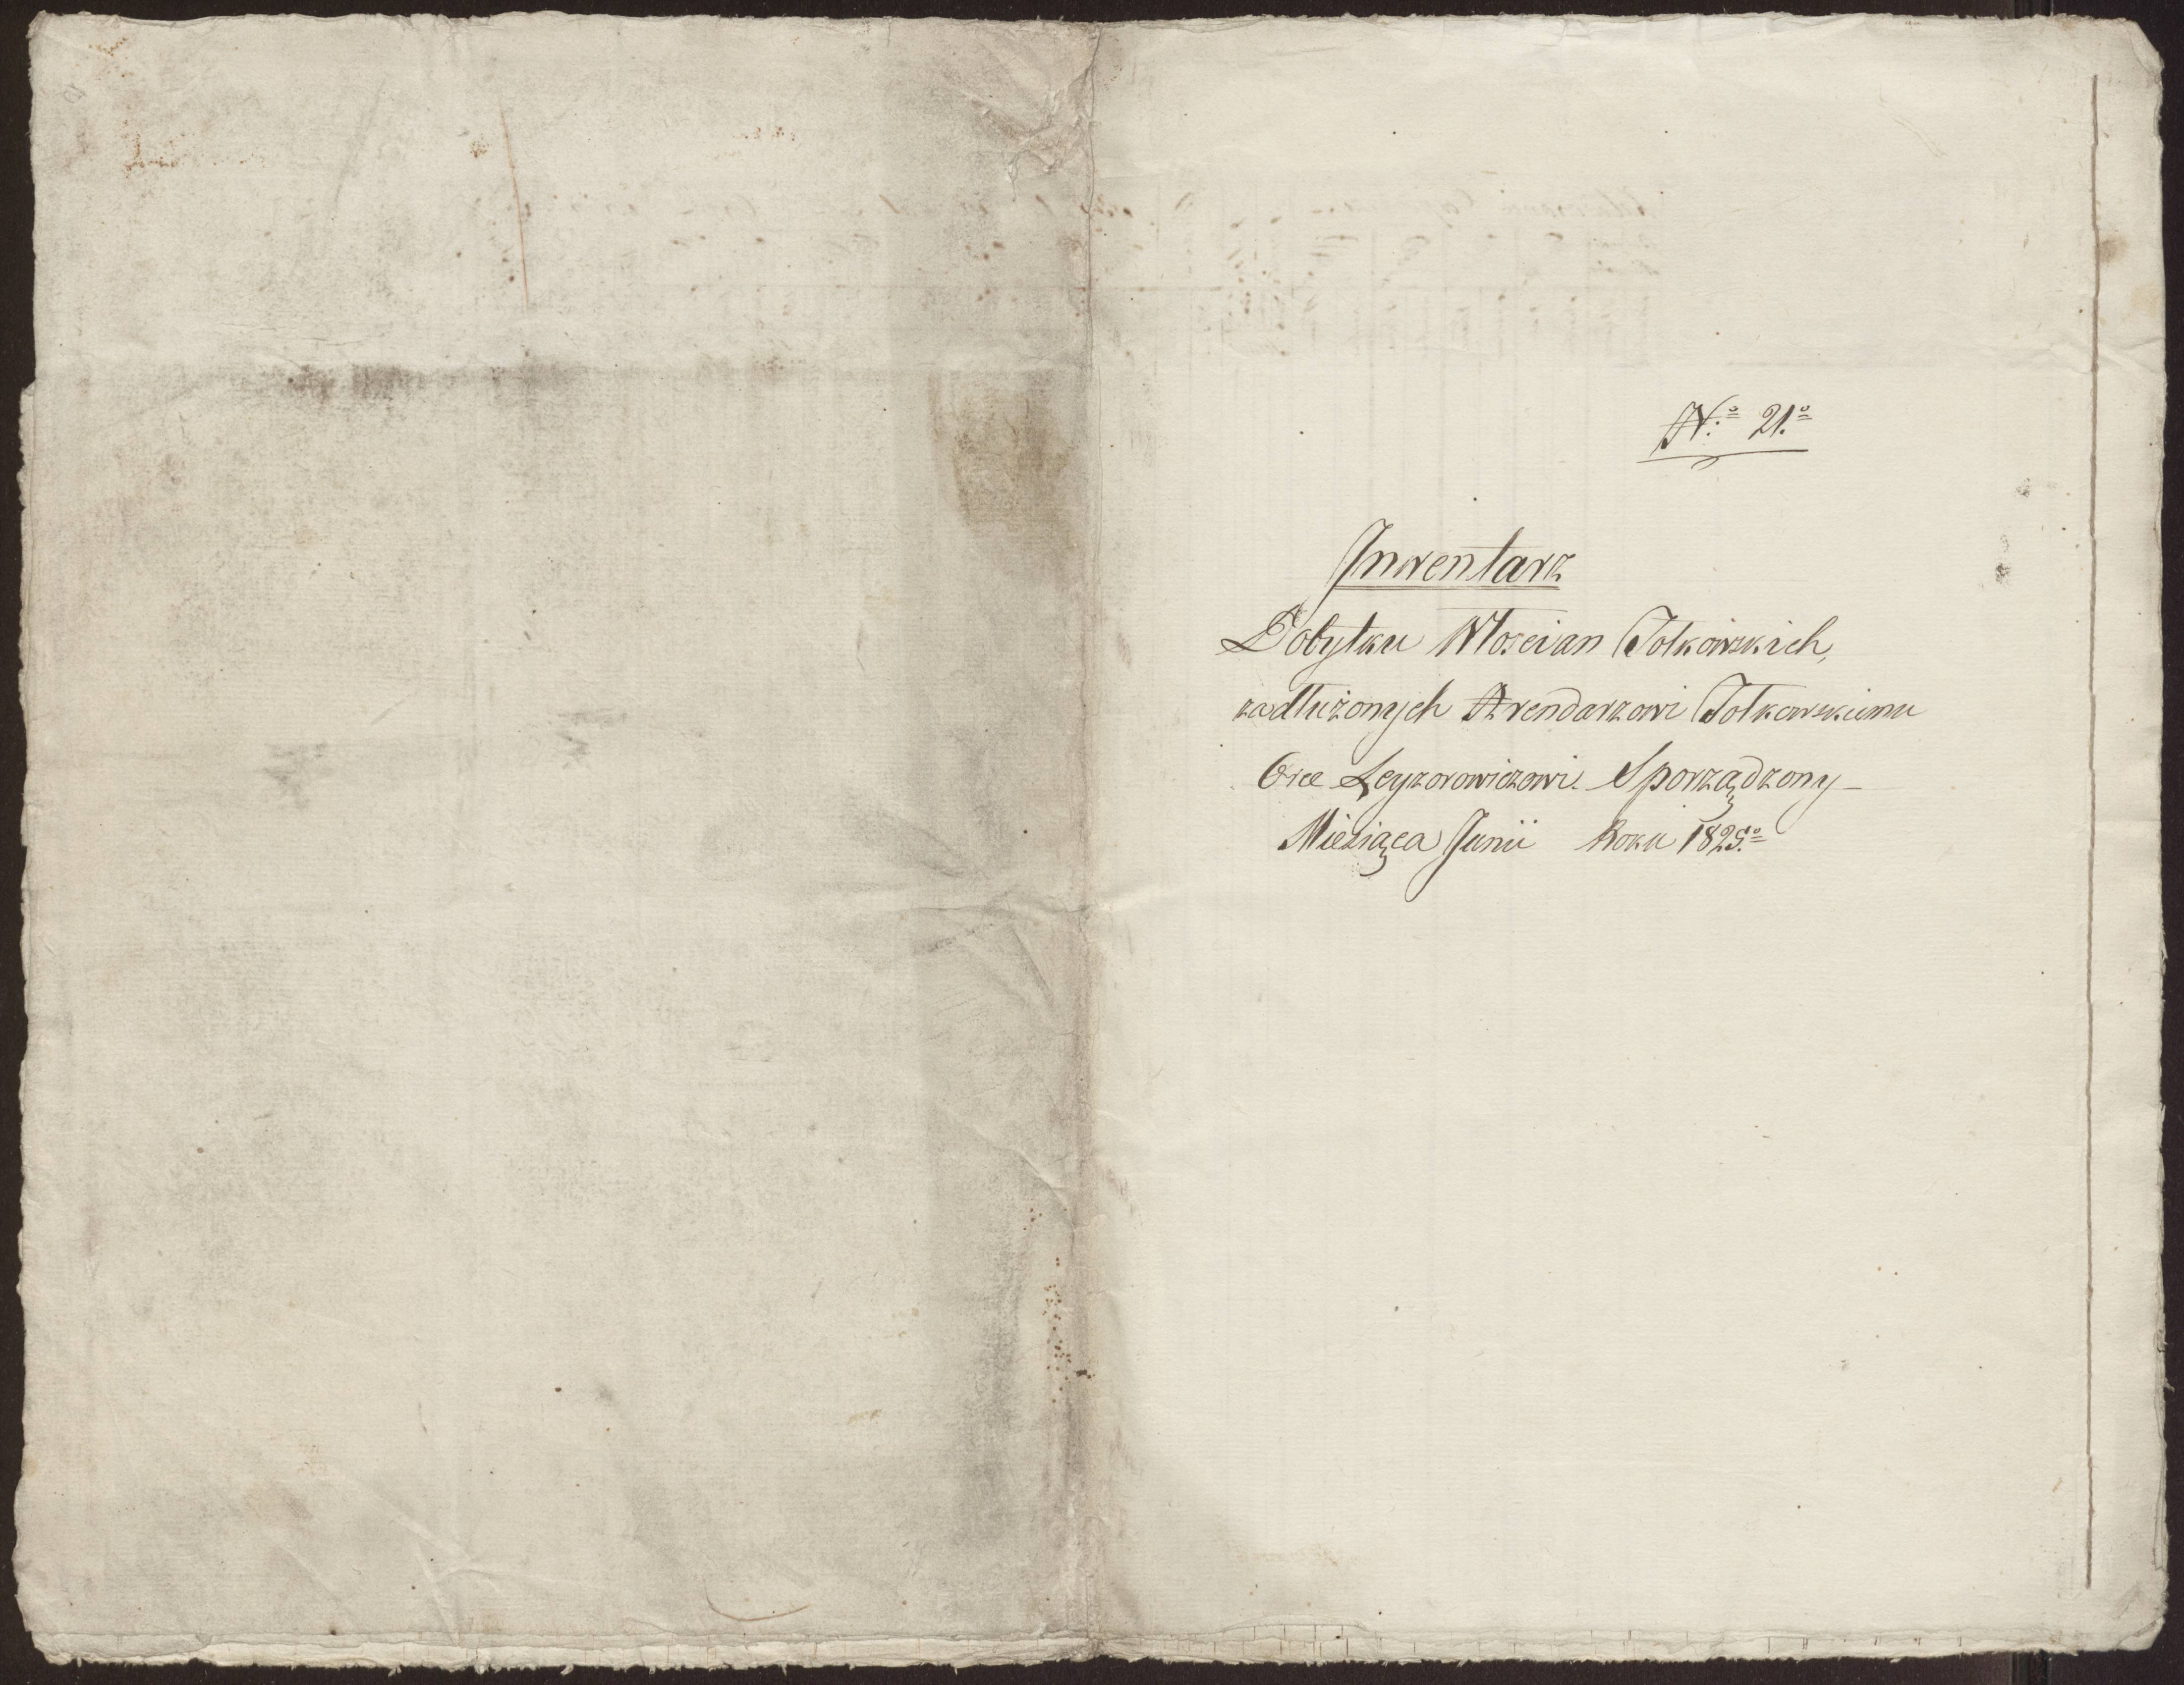 N:º 21.º
Inwentarz
Dobytku Włoscian Tolkowskich,
zadłużonych Arendarzowi Tolkowskiemu
Leyzorowiczowi. Sporządzony
Miesiąca Junii Roku 1825.º